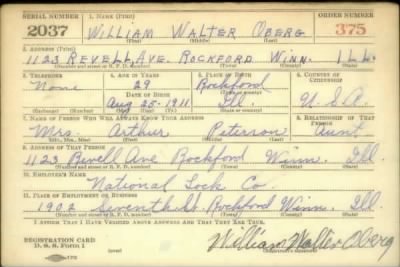 SERIAL NUMBER 1. NAME (Print) ORDER NUMBER
2037 WILLIAM WALTER OBERG 375
(First) (Middle) (Last)
2. ADDRESS (Print)
1123 REVELL AVE. ROCKFORD WINN. ILL.
(Number and street or R. F. D. number) (Town) (County) (State)
3. TELEPHONE 4. AGE IN YEARS 5. PLACE OF BIRTH 6. COUNTRY OF CITIZENSHIP
None 29 Rockford
DATE OF BIRTH (Town or county)
Aug 25-1911 Ill. U.S.A.
(Exchange) (Number) (Mo.) (Day) (Yr.) (State or country)
7. NAME OF PERSON WHO WILL ALWAYS KNOW YOUR ADDRESS 8. RELATIONSHIP OF THAT PERSON
Mrs. Arthur Peterson Aunt
(Mr., Mrs., Miss) (First) (Middle) (Last)
9. ADDRESS OF THAT PERSON
1123 Revell Ave Rockford Winn. Ill.
(Number and street or R. F. D. number) (Town) (County) (State)
10. EMPLOYER'S NAME
National Lock Co.
11. PLACE OF EMPLOYMENT OR BUSINESS
1902 Seventh St. Rockford Winn. Ill.
(Number and street or R. F. D. number) (Town) (County) (State)
I AFFIRM THAT I HAVE VERIFIED ABOVE ANSWERS AND THAT THEY ARE TRUE.
REGISTRATION CARD
D. S. S. Form 1
William Walter Oberg